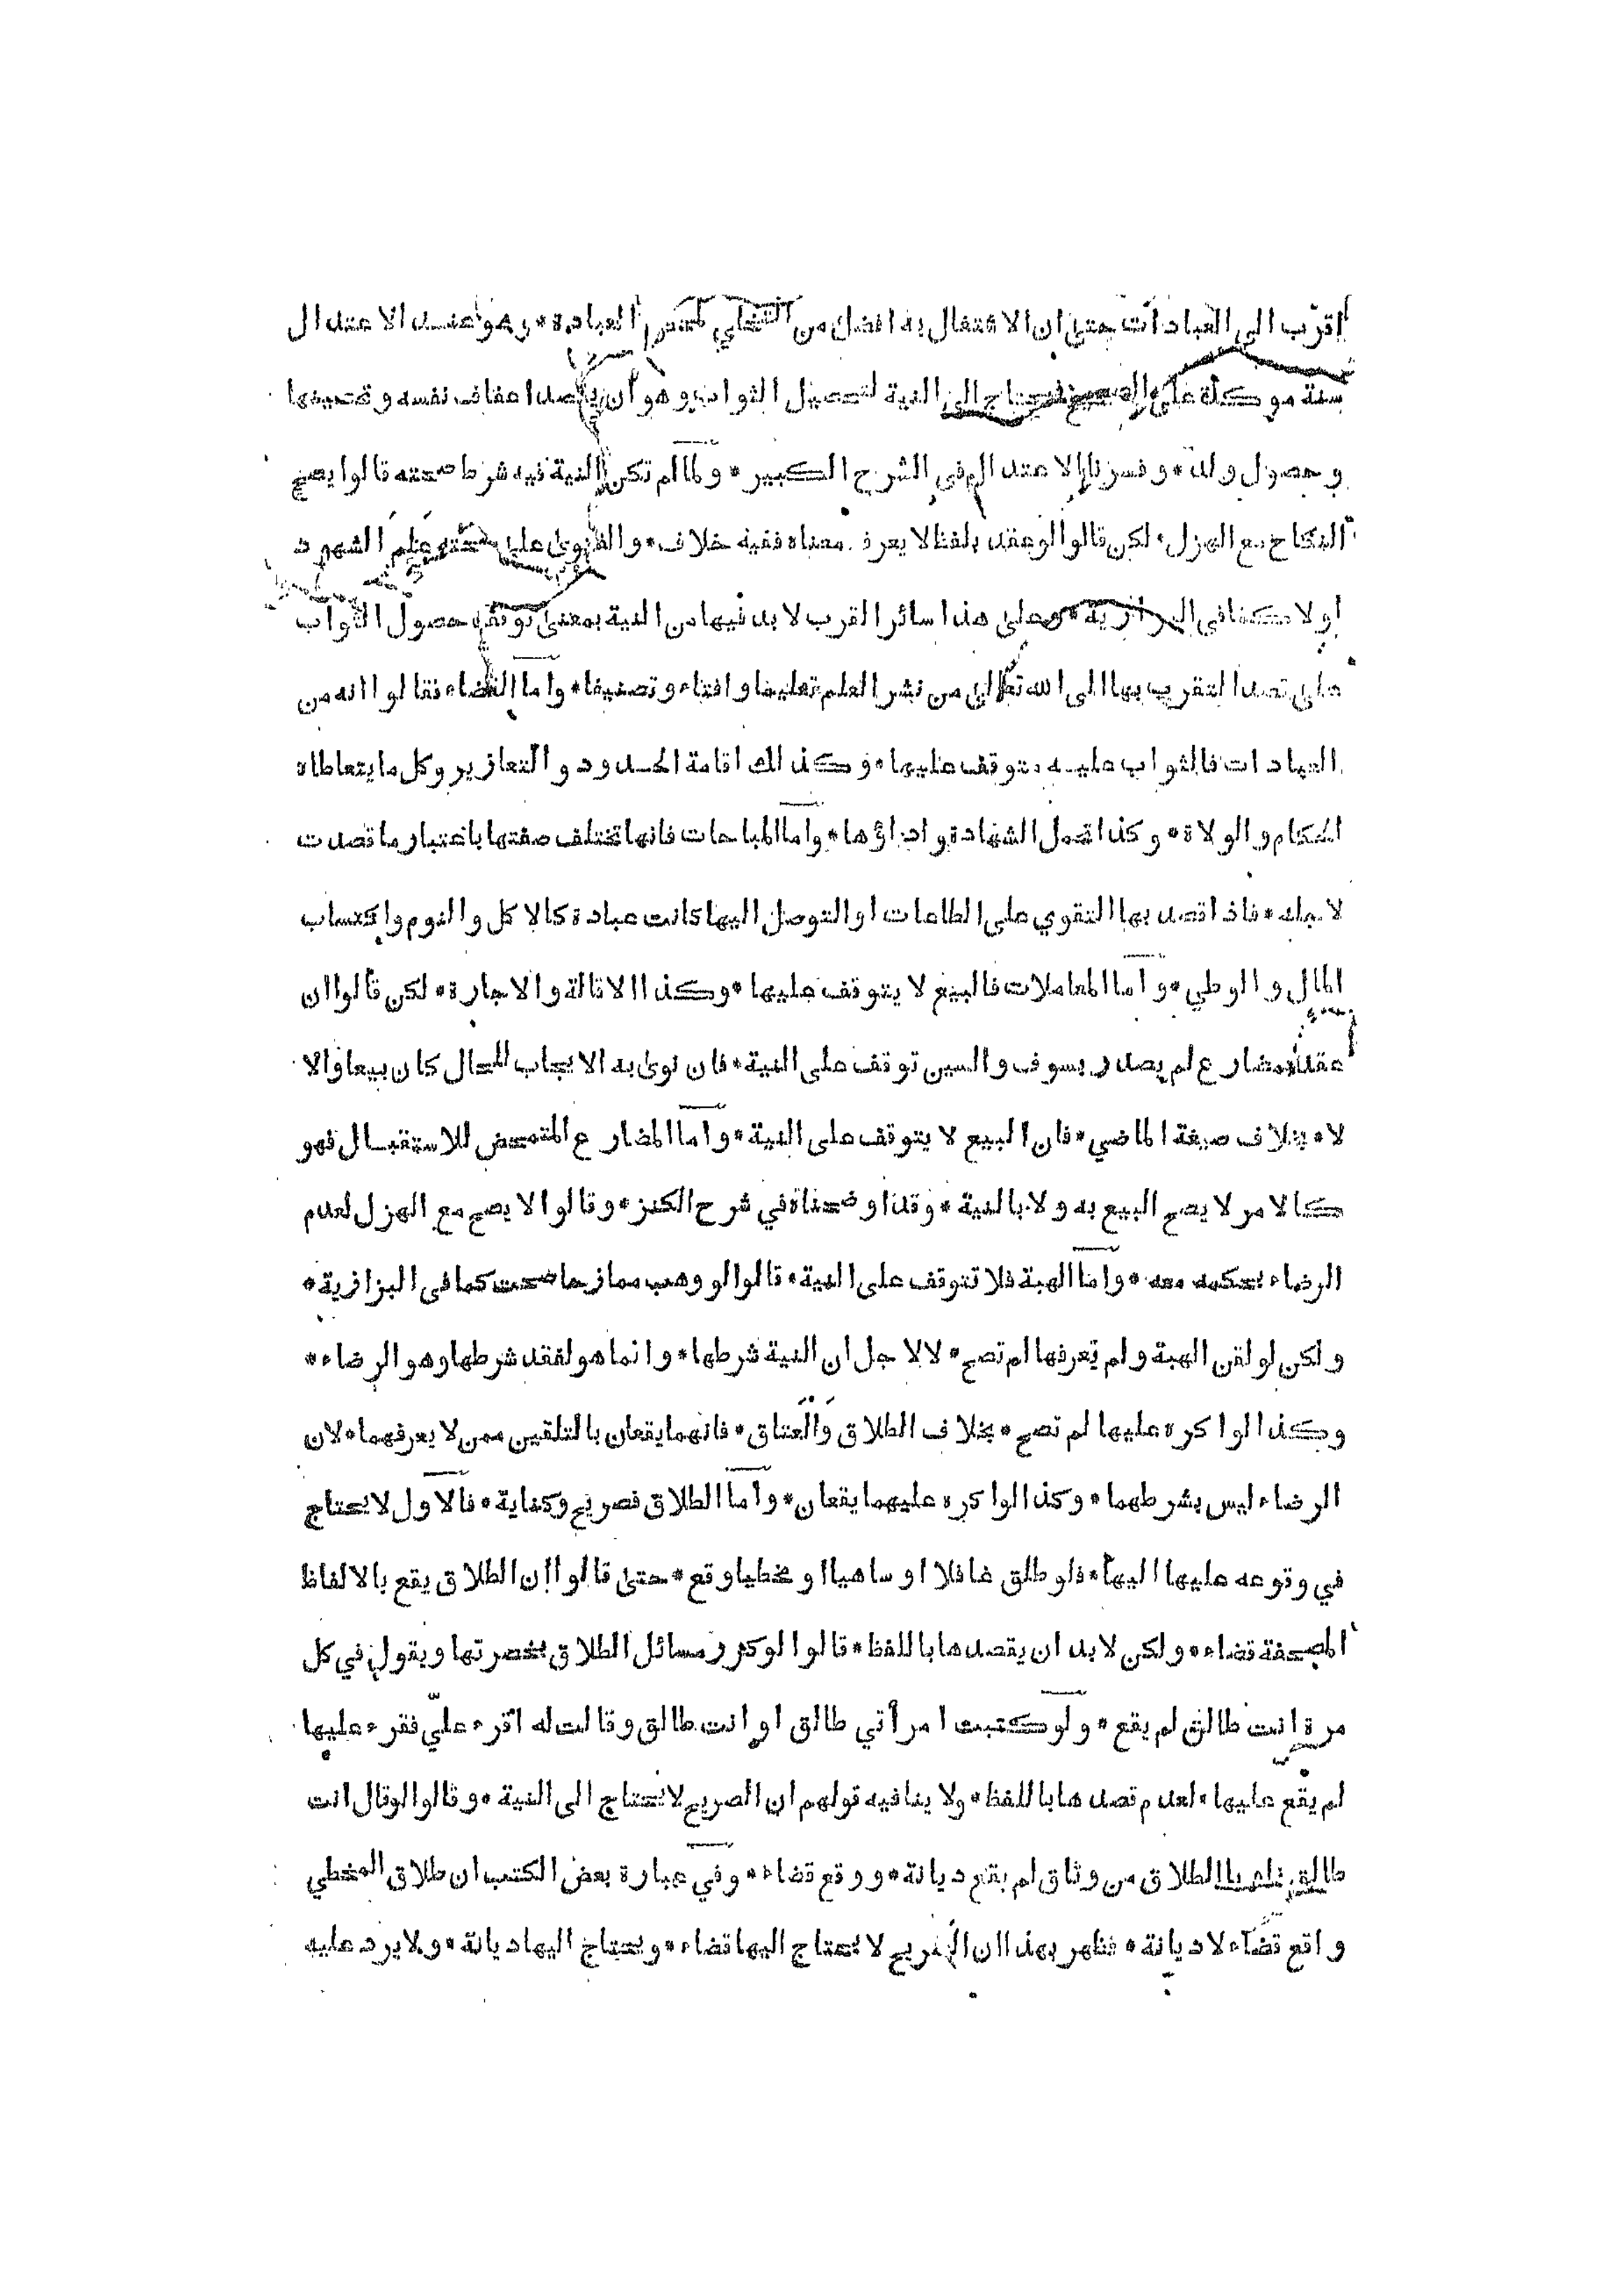 اقرب الى العبادات حتى ان الاشتغال به افضل من التخلي لمحض العبادة * وهو عند الاعتدال
سنة موكدة على الصحيح فيحتاج الى النية لتحصيل الثواب وهو ان يقصد اعفاف نفسه وتحصينها
وحصول ولد * وفسرنا الاعتدال في الشرح الكبير * ولما لم تكن النية فيه شرط صحته قالوا يصح
النكاح مع الهزل * لكن قالوا لو عقد بلفظ لا يعرف معناه ففيه خلاف * والفتوى على صحته علم الشهود
اولا كما في البزازية * وعلى هذا سائر القرب لا بد فيها من النية بمعنى توقف حصول الثواب
على قصد التقرب بها الى الله تعالى من نشر العلم تعليما وافتاء وتصنيفا * واما القضاء فقالوا انه من
العبادات فالثواب عليه متوقف عليها * وكذلك اقامة الحدود والتعازير وكل ما يتعاطاه
الحكام والولاة * وكذا تحمل الشهادة واداؤها * واما المباحات فانها تختلف صفتها باعتبار ما قصدت
لاجله * فاذا قصد بها التقوي على الطاعات او التوصل اليها كانت عبادة كالاكل والنوم واكتساب
المال والوطي * واما المعاملات فالبيع لا يتوقف عليها * وكذا الاقالة والاجارة * لكن قالوا ان
عقد بمضارع لم يصدر بسوف والسين توقف على النية * فان نوى به الايجاب للحال كان بيعا والا
لا * بخلاف صيغة الماضي * فان البيع لا يتوقف على النية * واما المضارع المتمحض للاستقبال فهو
كالامر لا يصح البيع به ولا بالنية * وقد اوضحناه في شرح الكنز * وقالوا لا يصح مع الهزل لعدم
الرضاء بحكمه معه * واما الهبة فلا تتوقف على النية * قالوا لو وهب ممازحا صحت كما في البزازية *
ولكن لو لقن الهبة ولم يعرفها لم تصح * لا لاجل ان النية شرطها * وانما هو لفقد شرطها وهو الرضاء *
وكذا لو اكره عليها لم تصح * بخلاف الطلاق والعتاق * فانهما يقعان بالتلقين ممن لا يعرفهما * لان
الرضاء ليس بشرطهما * وكذا لو اكره عليهما يقعان * واما الطلاق فصريح وكناية * فالاول لا يحتاج
في وقوعه عليها اليها * فلو طلق غافلا او ساهيا او مخطيا وقع * حتى قالوا ان الطلاق يقع بالالفاظ
المصحفة قضاء * ولكن لا بد ان يقصدها باللفظ * قالوا لو كرر مسائل الطلاق بحضرتها ويقول في كل
مرة انت طالق لم يقع * ولو كتبت امرأتي طالق او انت طالق وقالت له اقرء عليّ فقرء عليها
لم يقع عليها * لعدم قصدها باللفظ * ولا ينافيه قولهم ان الصريح لا يحتاج الى النية * وقالوا لو قال انت
طالق ناويا الطلاق من وثاق لم يقع ديانة * ووقع قضاء * وفي عبارة بعض الكتب ان طلاق المخطي
واقع قضاء لا ديانة * فظهر بهذا ان الصريح لا يحتاج اليها قضاء * ويحتاج اليها ديانة * ولا يرد عليه